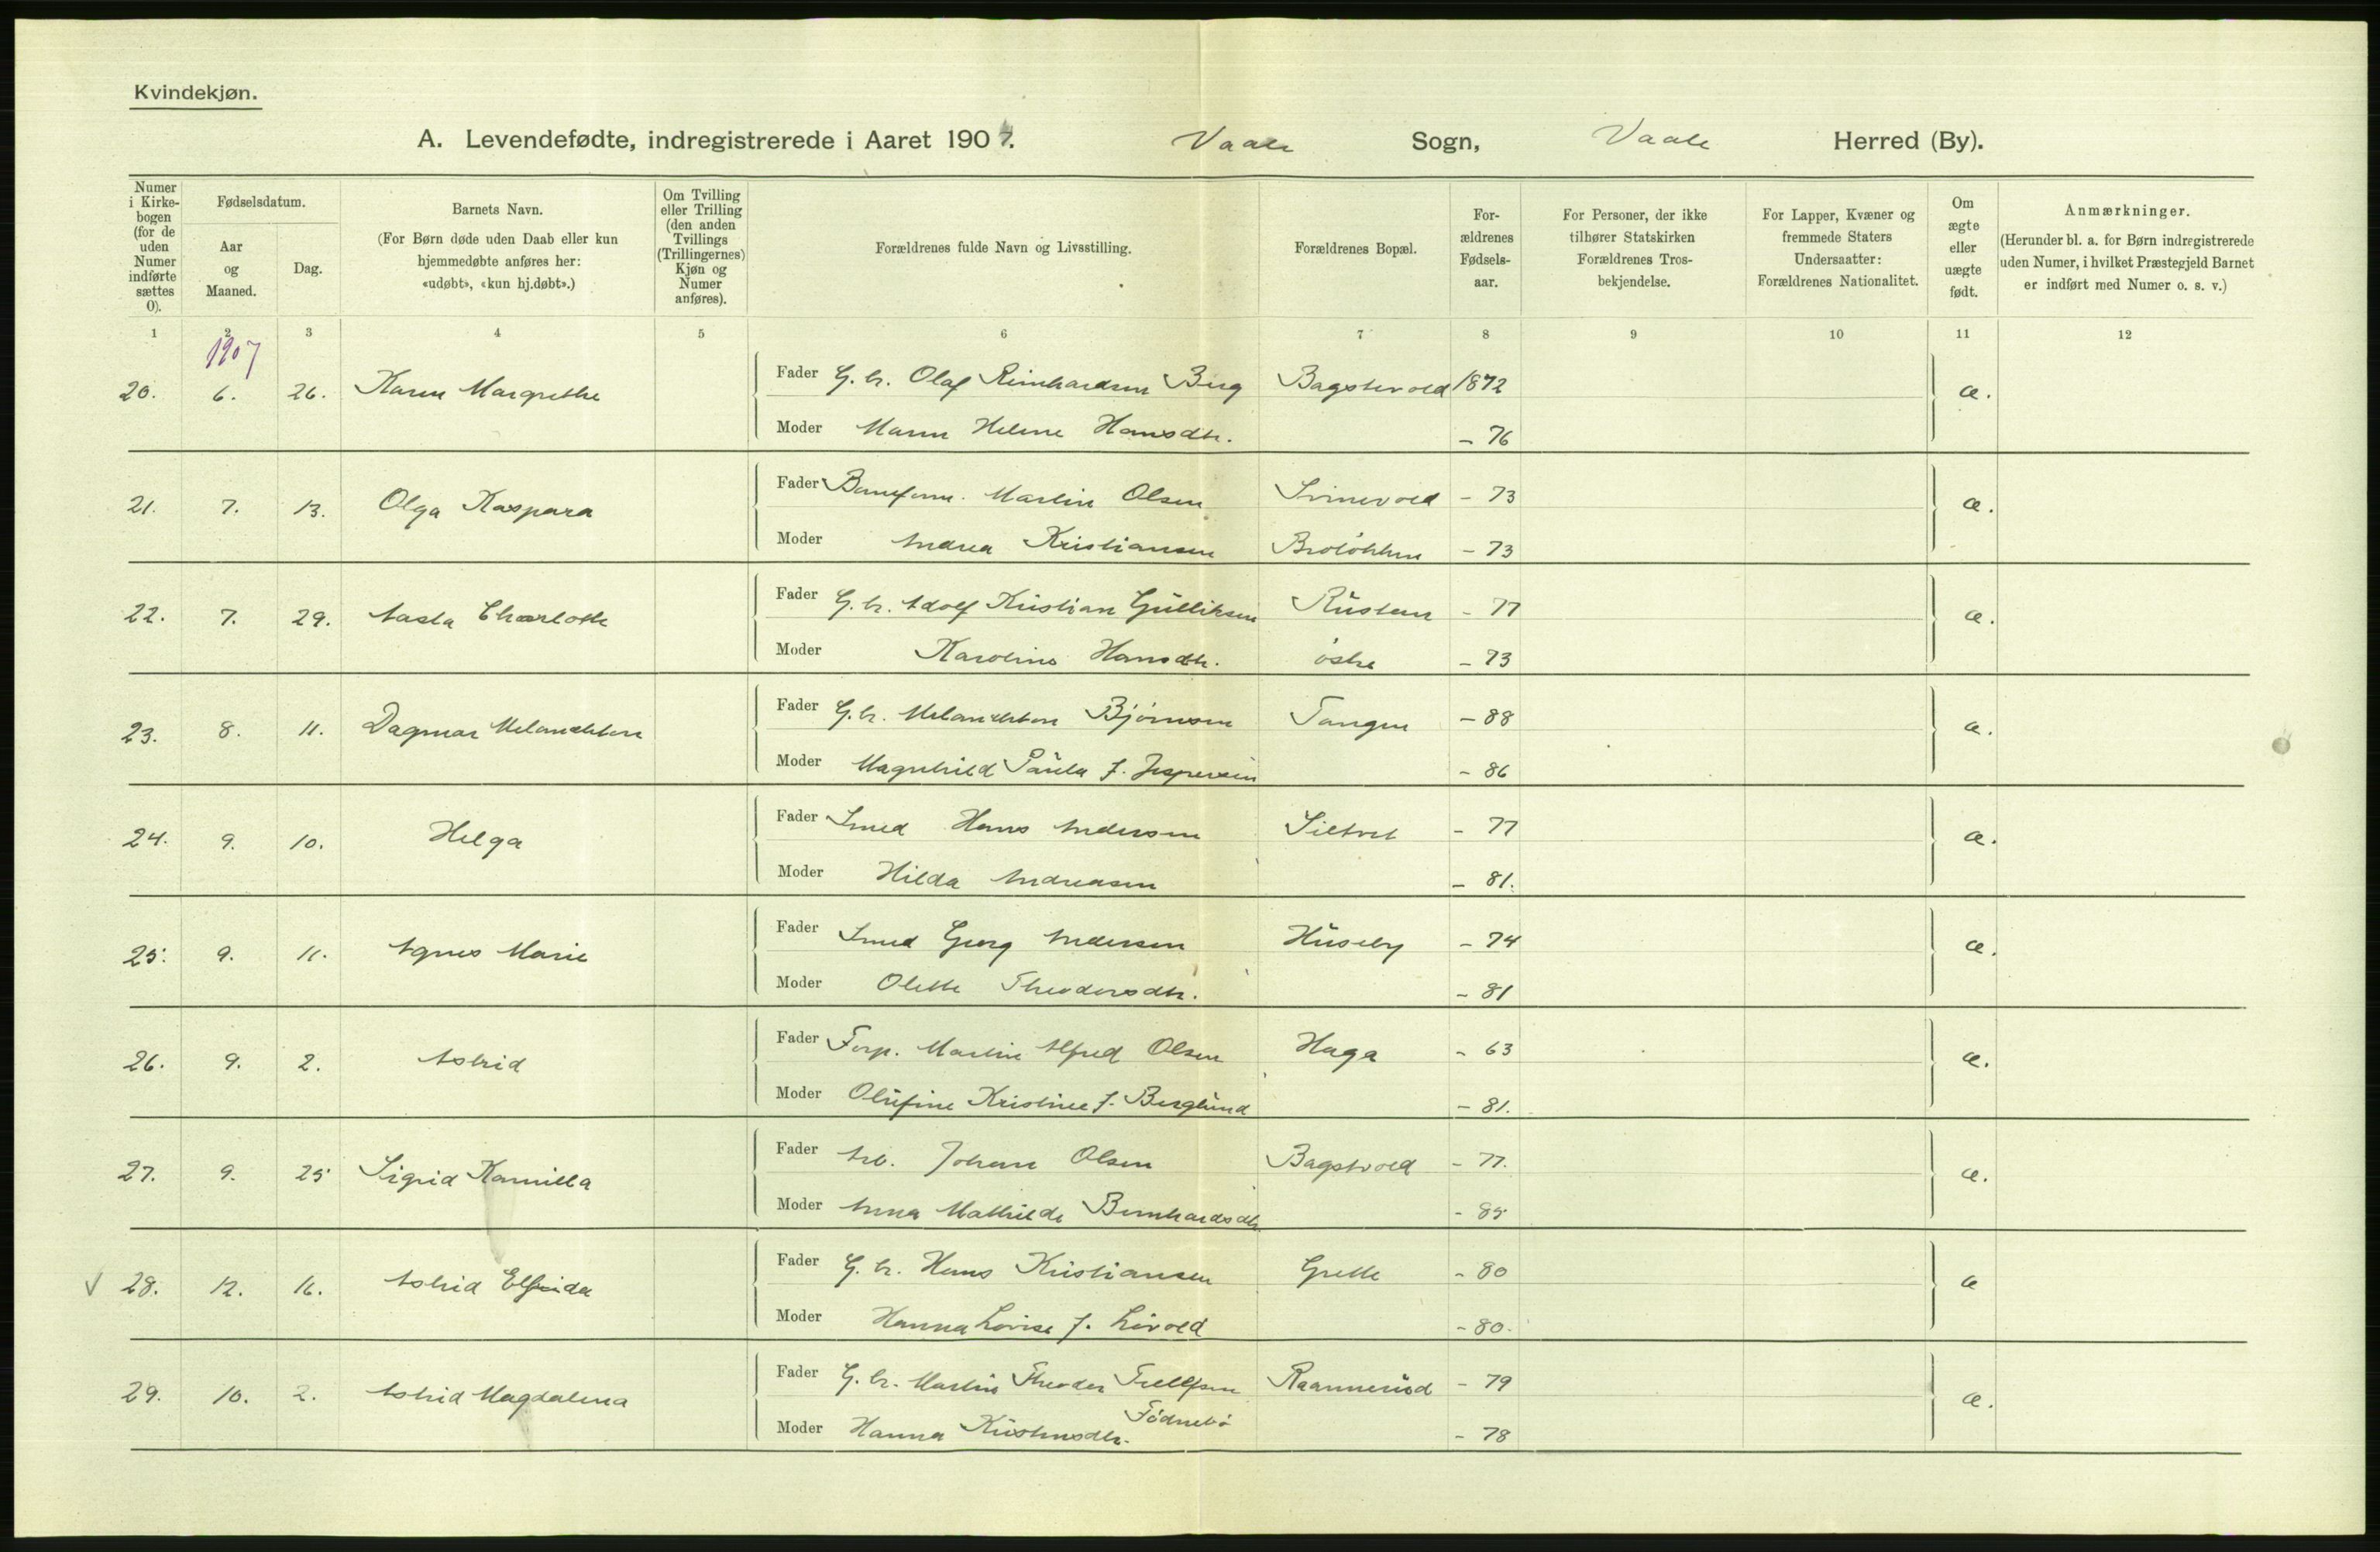 Kvindekjøn.
A. Levendefødte, indregistrerede i Aaret 1907. Vaale Sogn, Vaale Herred (By).
Numer i Kirkebogen (for de uden Numer indførte sættes 0).
Fødselsdatum.
Aar og Maaned.
Dag.
Barnets Navn.
(For Børn døde uden Daab eller kun hjemmedøbte anføres her: «udøbt», «kun hj.døbt».)
Om Tvilling eller Trilling (den anden Tvillings (Trillingernes) Kjøn og Numer anføres).
Forældrenes fulde Navn og Livsstilling.
Forældrenes Bopæl.
Forældrenes Fødselsaar.
For Personer, der ikke tilhører Statskirken Forældrenes Trosbekjendelse.
For Lapper, Kvæner og fremmede Staters Undersaatter: Forældrenes Nationalitet.
Om ægte eller uægte født.
Anmærkninger.
(Herunder bl. a. for Børn indregistrerede uden Numer, i hvilket Præstegjeld Barnet er indført med Numer o. s. v.)
1 2 3 4 5 6 7 8 9 10 11 12
1907
20. 6. 26. Karen Margrethe Fader G. br. Olaf Reinhardsen Berg Bagstevold 1872 æ.
Moder Maren Helene Hansdtr. - 76
21. 7. 13. Olga Kaspara Fader Baneform. Martin Olsen Svinevold - 73 æ.
Moder Andrea Kristiansen Broløkken - 73
22. 7. 29. Aasta Charlotte Fader G. br. Adolf Kristian Gulliksen Rustan - 77 æ.
Moder Karoline Hansdtr. østre - 73
23. 8. 11. Dagmar Melanchton Fader G. br. Melanchton Bjørnsen Tangen - 88 æ.
Moder Magnhild Paula f. Jespersen - 86
24. 9. 10. Helga Fader Smed Hans Andersen - 77 æ.
Moder Hilda Andreasen - 81.
25. 9. 11. Agnes Marie Fader Smed Georg Andersen Huseby - 74 æ.
Moder Olette Theodorsdtr. - 81
26. 9. 2. Astrid Fader Forp. Martin Alfred Olsen Haga - 63 æ.
Moder Olufine Kristine f. Berglund - 81.
27. 9. 25 Sigrid Kamilla Fader Arb. Johan Olsen Bagstvold - 77. æ.
Moder Anna Mathilde Bernhardsdtr. - 85
V 28. 12. 16. Astrid Elfrida Fader G. br. Hans Kristiansen Grette - 80 æ
Moder Hanna Lovise f. Livold - 80.
29. 10. 2. Astrid Magdalena Fader G. br. Martin Theodor Trellfsen Raannerud - 79 æ.
Fødnebø
Moder Hanna Kristensdtr. - 78